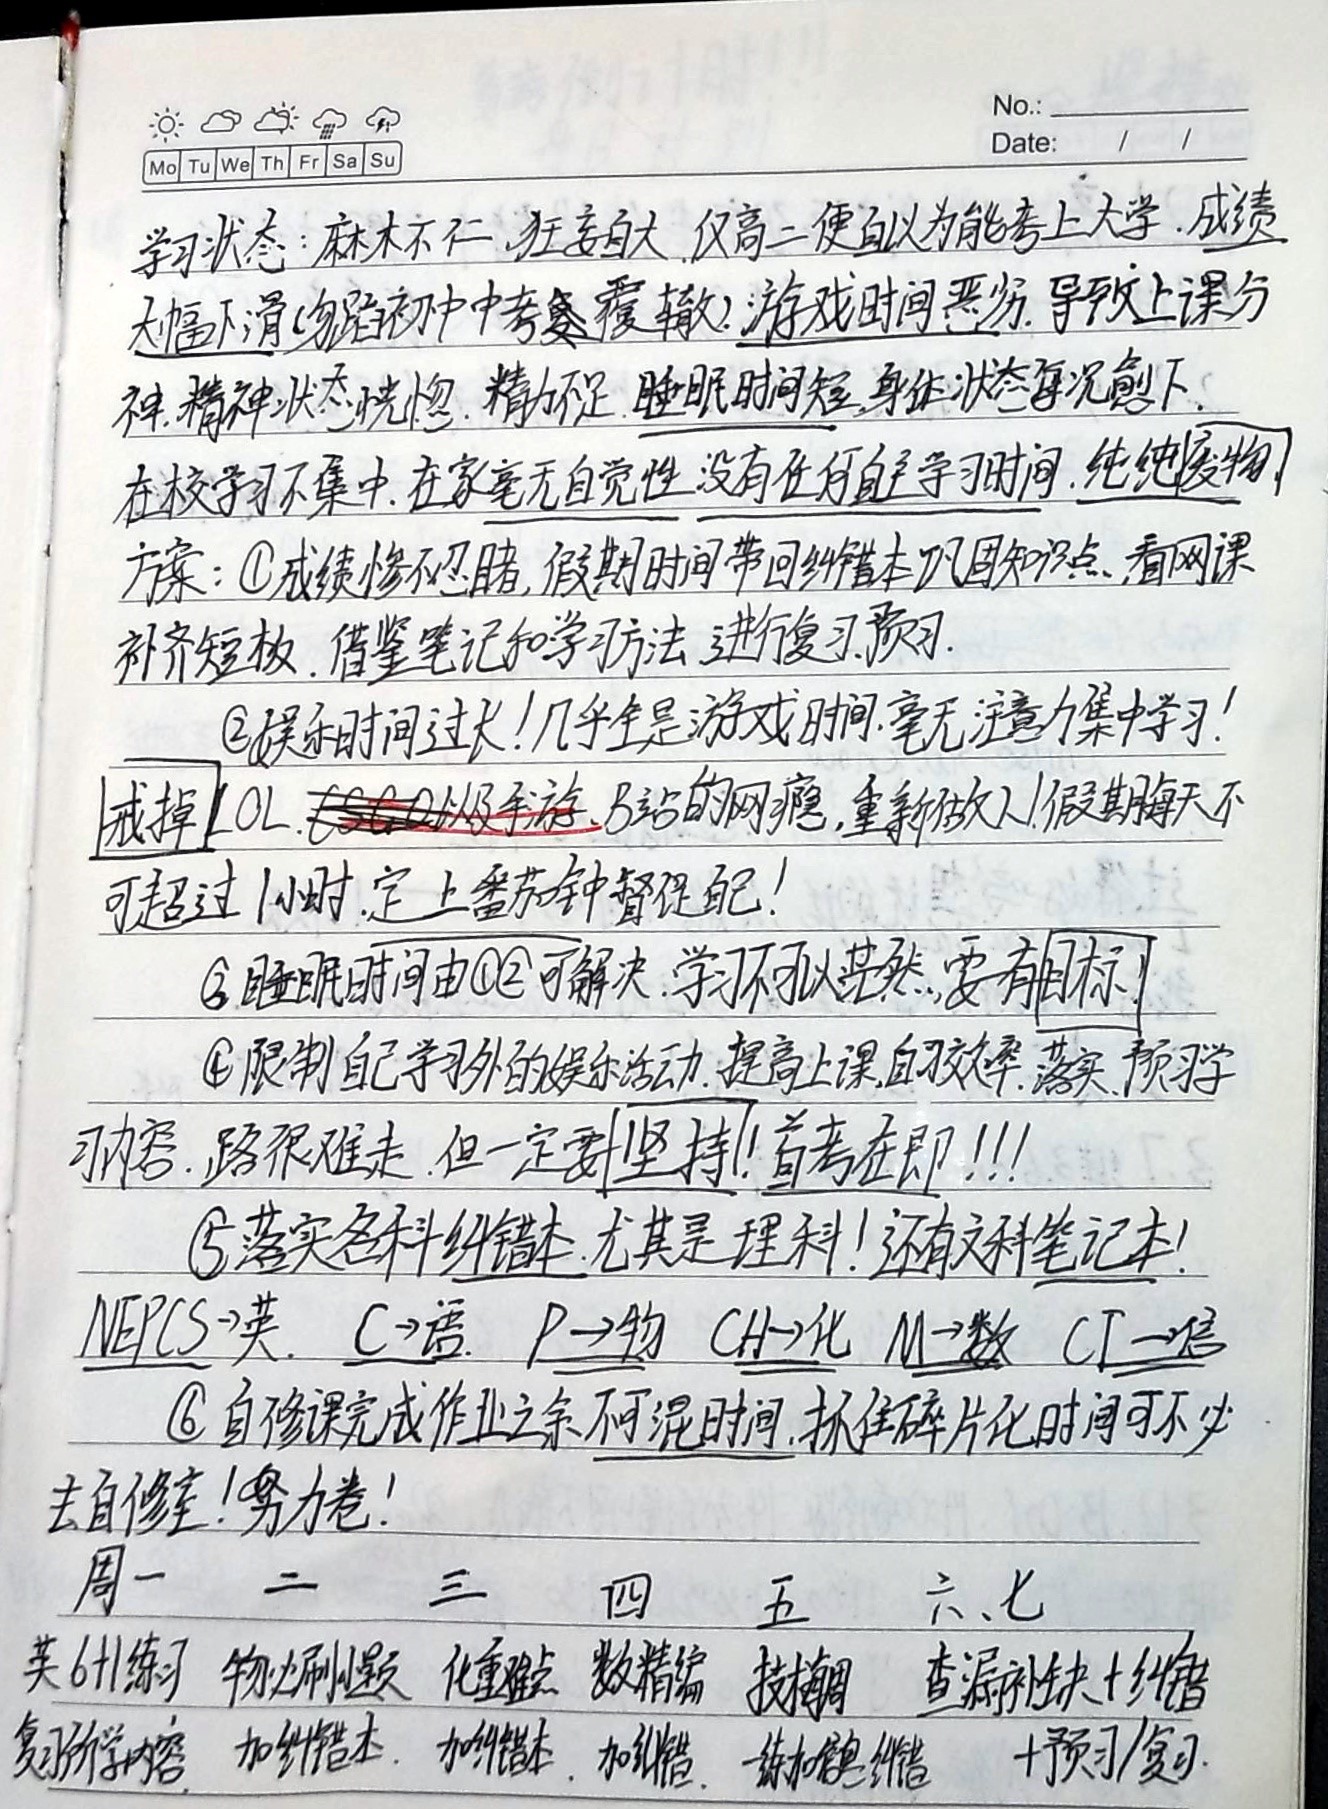 No.:
Date: / /
Mo Tu We Th Fr Sa Su
学习状态：麻木不仁、狂妄自大、仅高二便自以为能考上大学、成绩
大幅下滑(勿蹈初中中考覆辙)、游戏时间恶劣、导致上课分
神、精神状态恍惚、精力不足、睡眠时间短、身体状态每况愈下、
在校学习不集中、在家毫无自觉性、没有任何自主学习时间、纯纯废物！
方案：①成绩惨不忍睹，假期时间带回纠错本巩固知识点、看网课
补齐短板、借鉴笔记和学习方法、进行复习、预习.
②娱乐时间过长！几乎全是游戏时间、毫无注意力集中学习！
戒掉LOL、CSGO以及手游、B站的网瘾，重新做人！假期每天不
可超过1小时、定上番茄钟督促自己！
③睡眠时间由①②可解决、学习不可以茫然，要有目标！
④限制自己学习外的娱乐活动、提高上课、自习效率、落实、预习学
习内容、路很难走、但一定要坚持！首考在即！！！
⑤落实各科纠错本、尤其是理科！还有文科笔记本！
NEPCS→英. C→语. P→物 CH→化 M→数 CT→信
⑥自修课完成作业之余不可混时间、抓住碎片化时间可不必
去自修室！努力卷！
周一 二 三 四 五 六、七
英6+1练习 物必刷小题 化重难点 数精编 技 查漏补缺+纠错
复习所学内容 加纠错本. 加纠错本. 加纠错. 一练加 纠错 +预习/复习.